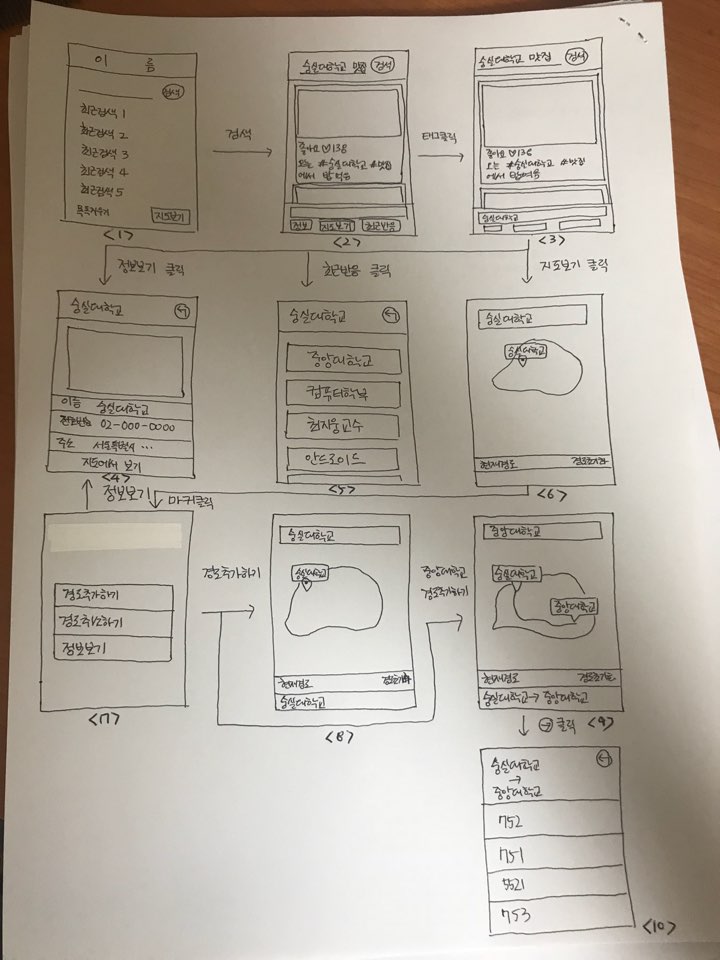 이 름
검색
최근검색 1
최근검색 2
최근검색 3
최근검색 4
최근검색 5
목록지우기 지도보기
<1>
검색
숭실대학교 맛집 검색
좋아요 ♡138
오늘 #숭실대학교 #맛집
에서 밥먹음
정보 지도보기 최근반응
<2>
태그클릭
숭실대학교 맛집 검색
좋아요 ♡138
오늘 #숭실대학교 #맛집
에서 밥먹음
숭실대학교
<3>
정보보기 클릭
최근반응 클릭
지도보기 클릭
숭실대학교
이름 숭실대학교
전화번호 02-000-0000
주소 서울특별시 ...
지도에서 보기
<4>
숭실대학교
중앙대학교
컴퓨터학부
최지웅교수
안드로이드
<5>
숭실대학교
숭실대학교
현재경로 경로초기화
<6>
정보보기
마커클릭
경로추가하기
경로취소하기
정보보기
<7>
경로추가하기
숭실대학교
숭실대학교
현재경로 경로초기화
숭실대학교
<8>
중앙대학교
경로추가하기
중앙대학교
숭실대학교
중앙대학교
현재경로 경로초기화
숭실대학교→ 중앙대학교
<9>
→ 클릭
숭실대학교
→
중앙대학교
752
751
5521
753
<10>